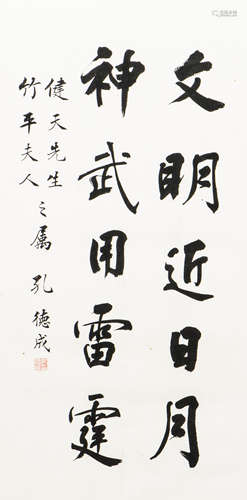 文明近日月
神武用雷霆
健天先生
竹平夫人之屬 孔德成